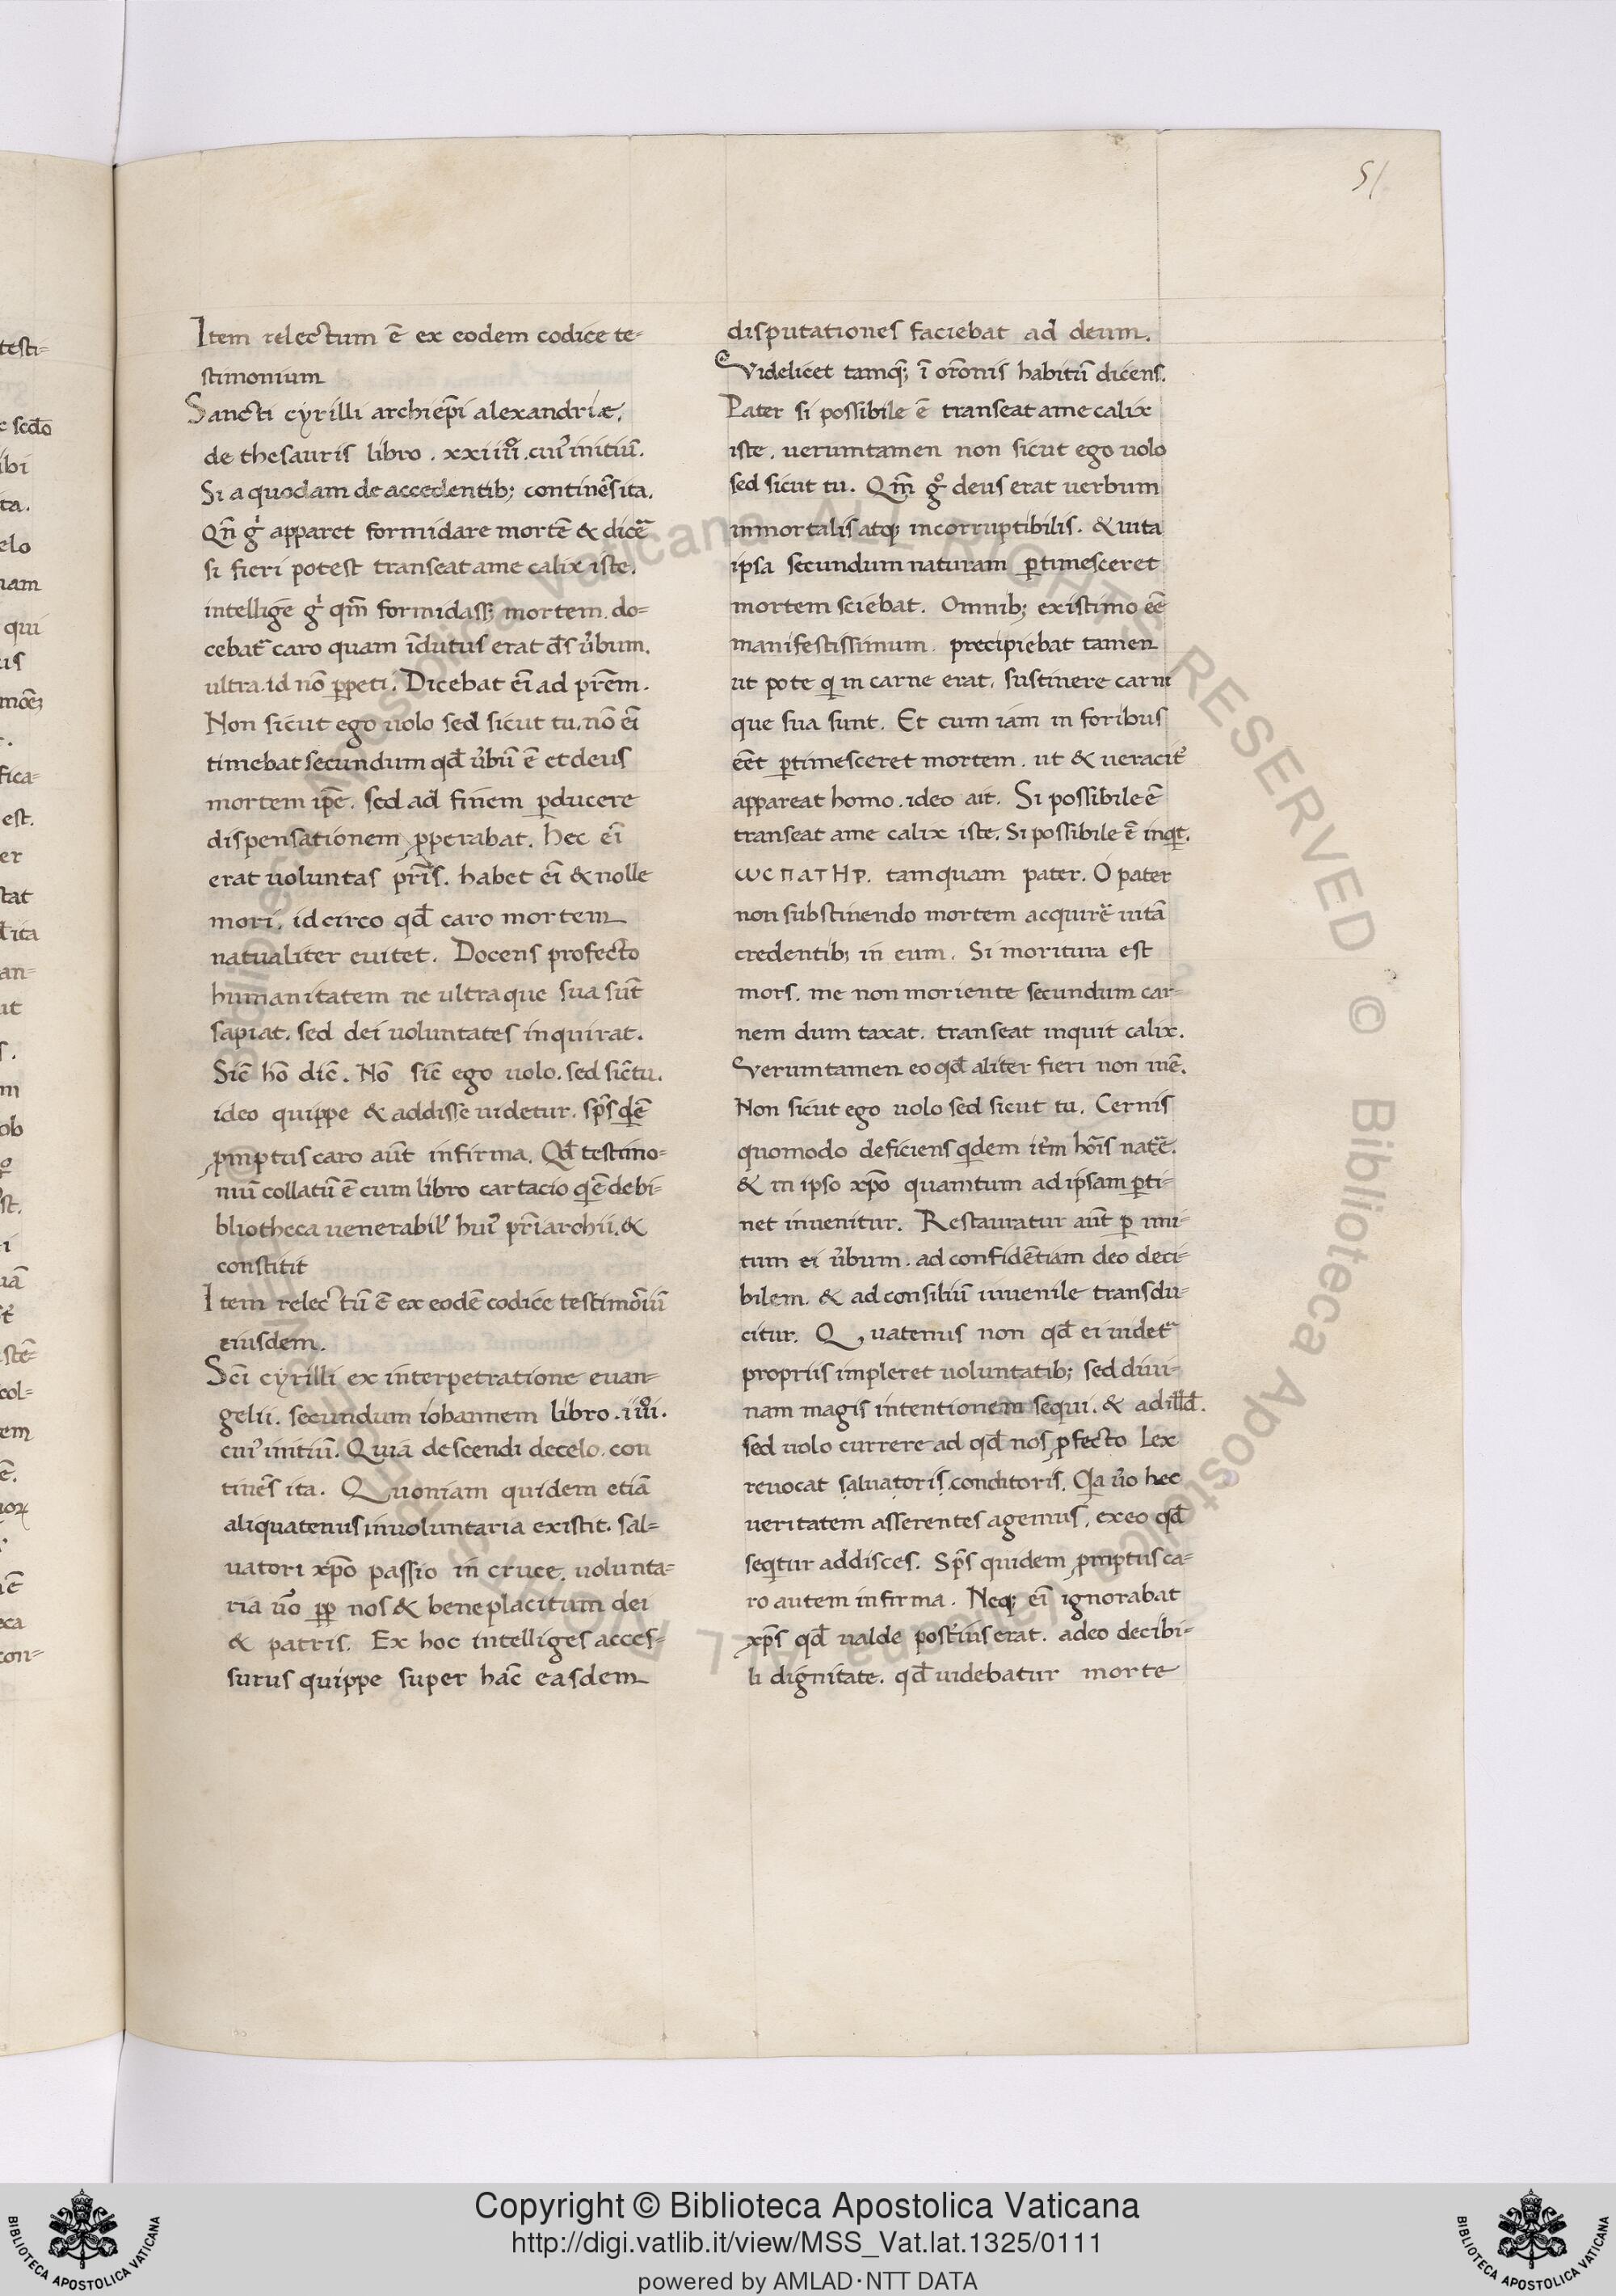 51
Item relectum ē ex eodem codice te-
stimonium
Sancti cyrilli archiep̄i alexandriæ.
de thesauris libro . xxiiii̊ . cuꝰ initiū.
Si a quodam de accedentib; continēs ita.
Qn̄ gͥ apparet formidare mortē & dicēᷓ
si fieri potest transeat ame calix iste.
intelligē gͥ qm̄ formidass; mortem . do-
cebatᷓ caro quam īdutus erat d̄s u̓bum.
ultra . id nō ꝑpeti. Dicebat eī ad prēm.
Non sicut ego uolo sed sicut tu. nō eī
timebat secundum qđ u̓bū ē et deus
mortem ip̄e. sed ad finem ꝑducere
dispensationem ꝓperabat. hec eī
erat uoluntas pr̄is. habet eī & nolle
mori. idcirco qđ caro mortem
natualiter euitet. Docens profecto
humanitatem ne ultra que sua sūt
sapiat. sed dei uoluntates inquirat.
Sic̄ hō dic̄. Nō sic̄ ego uolo. sed sic̄ tu.
ideo quippe & addisse uidetur. sp̄s qͥdē
ꝓmptus caro aūt infirma. Qđ testimo-
niū collatū ē cum libro cartacio qͥ ē de bi-
bliotheca uenerabil' huiꝰ pr̄iarchii. &
constitit
Item relectū ē ex eodē codice testimōiū
eiusdem.
Sc̄i cyrilli ex interpetratione euan-
gelii. secundum iohannem libro . iiii̊.
cuiꝰ initiū. Quia descendi decelo. con
tinēs ita. Quoniam quidem etiā
aliquatenus inuoluntaria existit. sal-
uatori xp̄o passio in cruce. uolunta-
ria u̓o ꝓp nos & beneplacitum dei
& patris. Ex hoc intelliges acces-
surus quippe super hāc easdem
disputationes faciebat ad deum.
Videlicet tamq̄; ī or̄onis habitū dicens.
Pater si possibile ē transeat ame calix
iste. uerumtamen non sicut ego uolo
sed sicut tu. Qm̄ gͦ deus erat uerbum
immortalis atq; incorruptibilis. & uita
ipsa secundum naturam ꝑtimesceret
mortem sciebat. Omnib; existimo ēē
manifestissimum. precipiebat tamen
ut pote qͥ in carne erat. sustinere carni
que sua sunt. Et cum iam in foribus
ēēt ꝑtimesceret mortem. ut & ueracit̓
appareat homo. ideo ait. Si possibile ē
transeat ame calix iste. Si possibile ē inqͥt.
ωϲ πατΗρ. tamquam pater. O pater
non substinendo mortem acquirēᷓ uitā
credentib; in eum. Si moritura est
mors. me non moriente secundum car-
nem dum taxat. transeat inquit calix.
Verumtamen eo qđ aliter fieri non inē.
Non sicut ego uolo sed sicut tu. Cernis
quomodo deficiens qͥdem it̓m hōis natᷓē.
& in ipso xp̄o quamtum ad ipsam ꝑti-
net inuenitur. Restauratur aūt ꝑ uni-
tum ei u̓bum. ad confidētiam deo deci-
bilem. & ad consiliū iuuenile transdu-
citur. Quatenus non qđ ei uidetᷓ
propriis impleret uoluntatib; sed diui-
nam magis intentionem sequi. & ad ill̄đ.
sed uolo currere ad qđ nos ꝓfecto lex
reuocat saluatoris conditoris. Qͣa u̓o hec
ueritatem asserentes agemus. ex eo qđ
seqͥtur addisces. Sp̄s quidem ꝓmptus ca-
ro autem infirma. Neq; eī ignorabat
xp̄s qđ ualde post̓ius erat. adeo decibi-
li dignitate. qđ uidebatur morte
Copyright © Biblioteca Apostolica Vaticana
http://digi.vatlib.it/view/MSS_Vat.lat.1325/0111
powered by AMLAD·NTT DATA